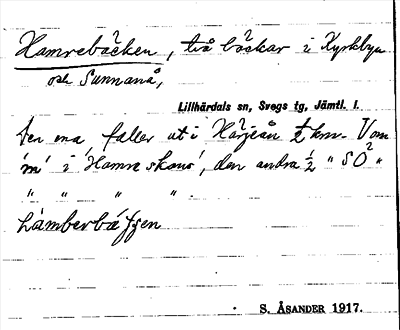 Hamrebäcken, två bäckar i Kyrkbyn
och Sunnanå,
Lillhärdals sn, Svegs tg, Jämtl. l.
Den ena faller ut i Härjeån ½ km. V om
"m" i "Hamre skans", den andra ½ " SO "
" " " " .
hámberbä
S. ÅSANDER 1917.